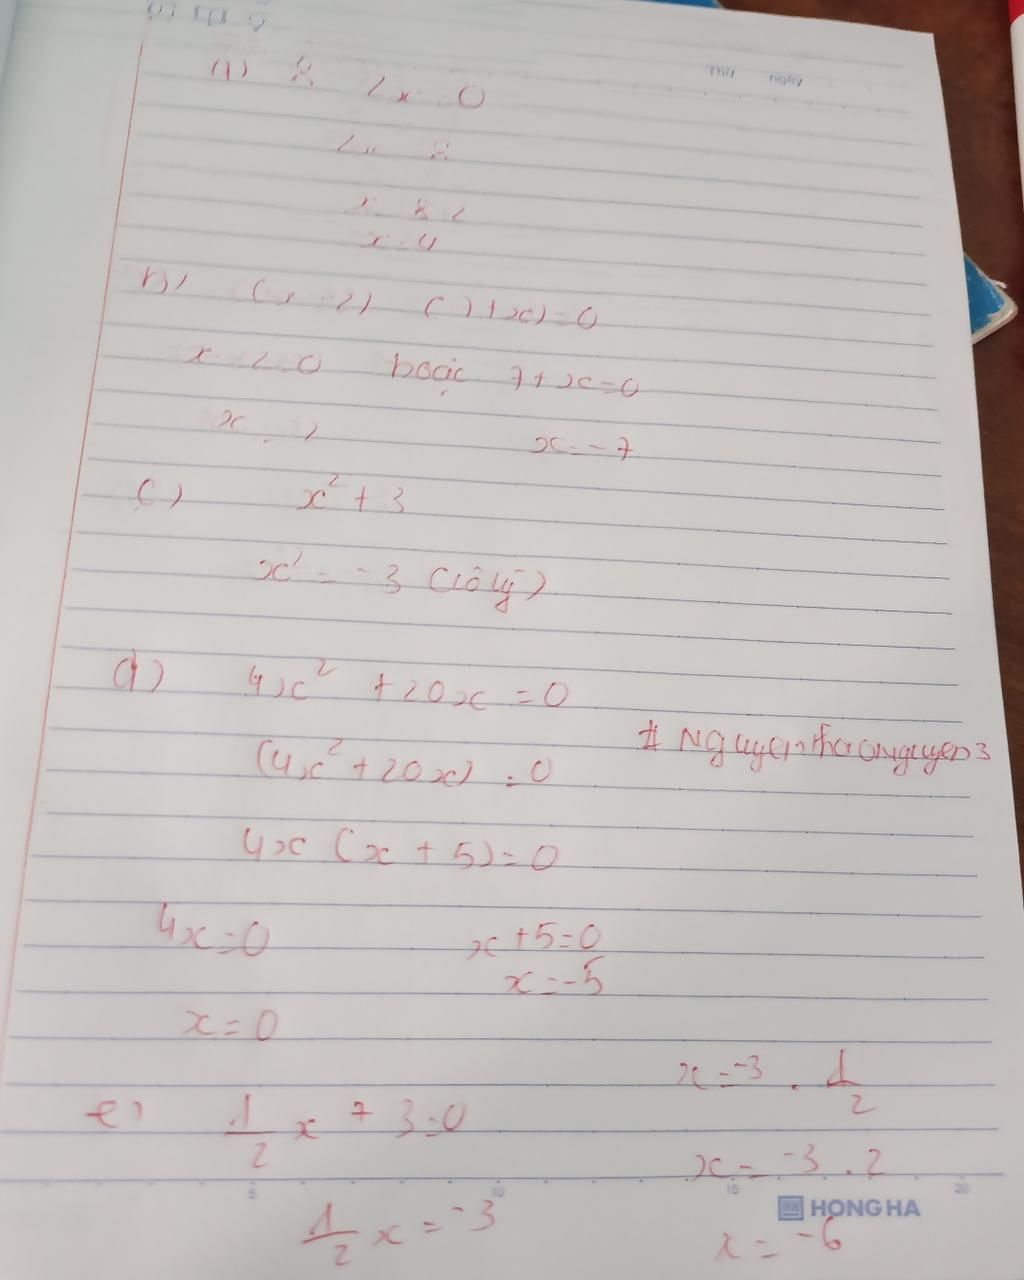 Thứ ngày
a) 8 - 2x = 0
2x = 8
x = 8:2
x = 4
b) (x - 2) (7+x)=0
x - 2 = 0 hoặc 7+x=0
x = 2 x=-7
c) x² + 3
x² = -3 (vô lý)
d) 4x² +20x =0
(4x²+20x) =0
# Nguyenthaonguyen3
4x (x + 5)=0
4x=0 x+5=0
x=-5
x=0
e) 1/2 x + 3=0
1/2 x = -3
x=-3 . 1/2
x= -3 . 2
x = -6
5 10 15 20
HONG HA